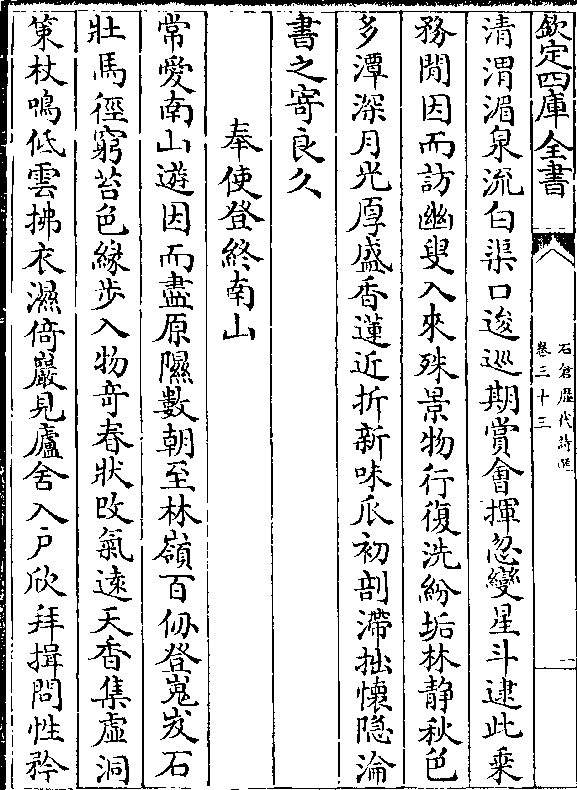 欽定四庫全書
石倉歷代詩選
卷三十三
清渭湄泉流白渠口逡巡期賞會揮忽變星斗逮此乗
務閒因而訪幽叟入來殊景物行復洗紛垢林静秋色
多潭深月光厚盛香蓮近折新味瓜初剖滯拙懐隐淪
書之寄良久
奉使登終南山
常愛南山遊因而盡原隰數朝至林嶺百仭登嵬岌石
壯馬徑窮苔色緣步入物竒春狀改氣逺天香集虛洞
策杖鳴低雲拂衣濕倚巖見廬舍入戶欣拜揖問性矜